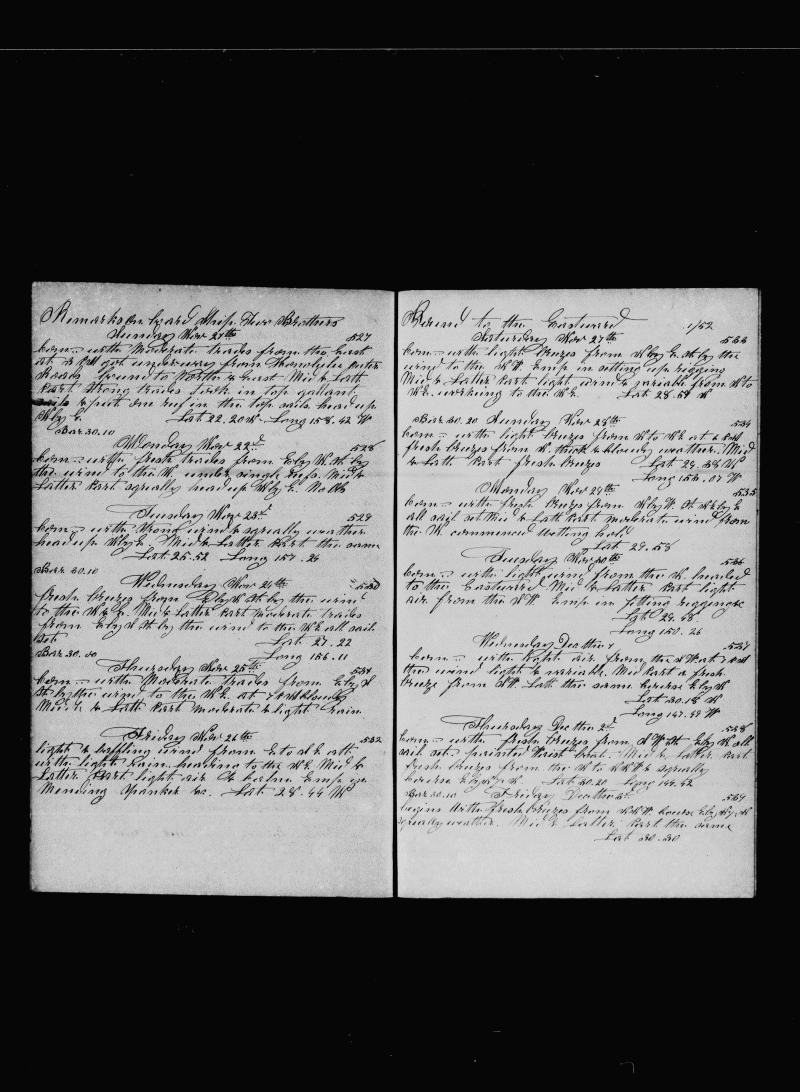 Remarks on board Ship Two Brothers
Sunday Nov 21th 527
com-- with Moderate trades from the East
at 2 PM got underway from Honolulu outer
Roads bound to North & East Mid & Latt
Part strong trades took in top gallant
sails & put one reef in the top sails head up
N by E. Lat 22.20 N - Long 158.42 W
Bar 30.10
Monday Nov 22d 528
com-- with fresh trades from E by N St by
the wind to the N under single Reefs. Mid &
Latter Part squally head up N by E. No Ob
Tuesday Nov 23d 529
com-- with strong wind & squally weather
head up N by E. Mid & Latter Part the same
Lat 25.52 Long 157.26
Bar 30.10
Wednesday Nov 24th 530
fresh breezes from E by N St by the wind
to the N & E. Mid & Latter Part moderate trades
from E by S St by the wind to the N E all sail
Set Lat 27.22
Bar 30.00 Long 156.11
Thursday Nov 25th 531
com-- with Moderate trades from E by S
St by the wind to the N E at 7 cloudy
Mid & Latt Part moderate & light rain
Friday Nov 26th 532
light & baffling wind from E to S E all
with light rain heading to the N E Mid &
Latter Part light air & calm Emp on
Mending Spanker &c. Lat 28.44 N
Bound to the Eastward 1/52
Saturday Nov 27th 533
com-- with light breezes from N by E. St by the
wind to the N W Emp in setting up rigging
Mid & Latter Part light wind & variable from N to
N E working to the N E. Lat 28.59 N
Bar 30.20 Sunday Nov 28th 534
com-- with light breezes from N to N E at
fresh breezes from N. thick & cloudy weather. Mid
& Latt Part fresh breezes Lat 29.38 N
Long 153.07 W
Monday Nov 29th 535
com-- with fresh breezes from N by W. St N E by E
all sail set Mid & Latt Part moderate wind from
the N. commenced wetting hold
Lat 29.58
Tuesday Nov 30th 536
com-- with light wind from the N. headed
to the Eastward Mid & Latter Part light
air from the S W. Emp in fitting rigging &c
Lat 29.48
Long 150.26
Wednesday Dec the 1 537
com-- with light air from the S W at
the wind light & variable. Mid Part a fresh
breeze from S W. Latt the same course E by N
Lat 30.18 N
Long 147.49 W
Thursday Dec the 2d 538
com-- with fresh breezes from S W St E by N all
sail set painted Waist boat. Mid & Latter Part
fresh breezes from the N to N N W & squally
course E by N. Lat 30.20 Long 144.42
Bar 30.10 Friday Dec the 3d 539
begins With fresh breezes from N N W. course E by N
squally weather. Mid & Latter Part the same
Lat 30.30